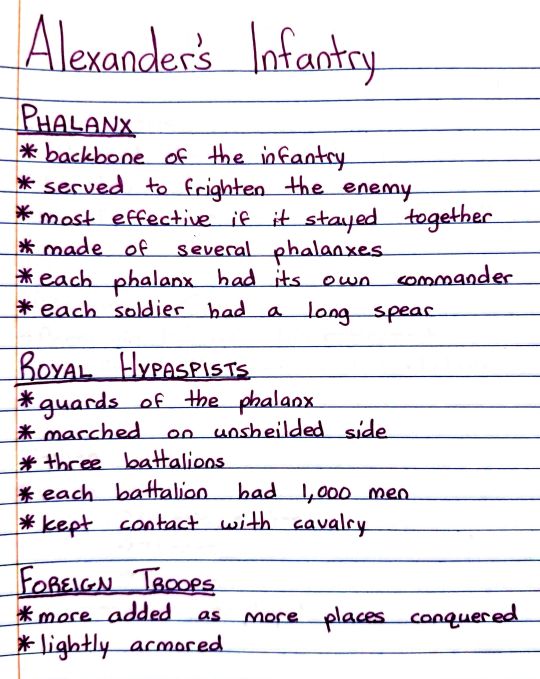 Alexander's Infantry
PHALANX
* backbone of the infantry
* served to frighten the enemy
* most effective if it stayed together
* made of several phalanxes
* each phalanx had its own commander
* each soldier had a long spear
ROYAL HYPASPISTS
* guards of the phalanx
* marched on unsheilded side
* three battalions
* each battalion had 1,000 men
* kept contact with cavalry
FOREIGN TROOPS
* more added as more places conquered
* lightly armored